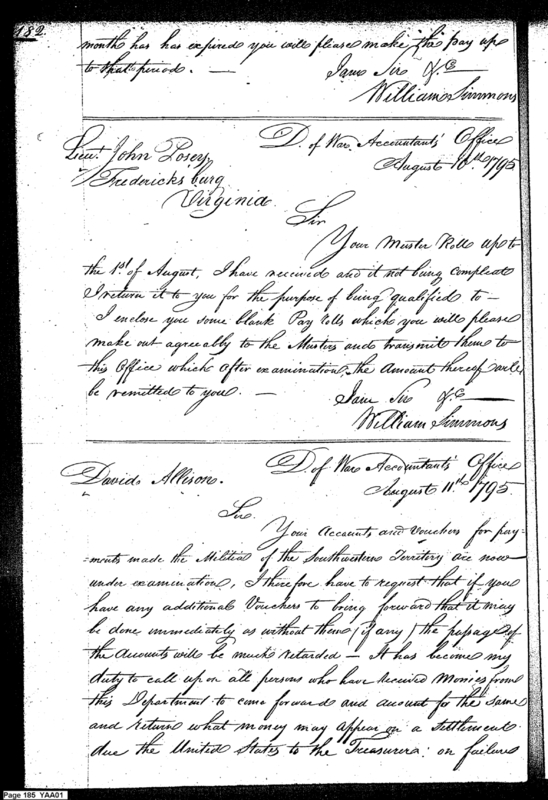 182
month has has expired you will please make the pay up
to that period. — I am Sir &c
William Simmons
D. of War. Accountants' Office
August 10th 1795
Lieut. John Posey
Fredericksburg
Virginia
Sir
Your Muster Roll up to
the 1st of August, I have received and it not being compleat
I return it to you for the purpose of being qualified to —
I enclose you some blank Pay rolls which you will please
make out agreeably to the Musters and transmit them to
this Office which after examination, the Amount thereof will
be remitted to you. — I am Sir &c —
William Simmons
D. of War Accountants' Office
August 11th 1795.
David Allison.
Sir
Your Accounts and Vouchers for pay-
=ments made the Militia of the Southwestern Territory are now
under examination, I therefore have to request that if you
have any additional Vouchers to bring forward that it may
be done immediately as without them (if any) the passage of
the Accounts will be much retarded — It has become my
duty to call up on all persons who have received Monies from
this Department to come forward and account for the same
and return what money may appear on a Settlement
due the United States to the Treasurer: on failure
Page 185 YAA01